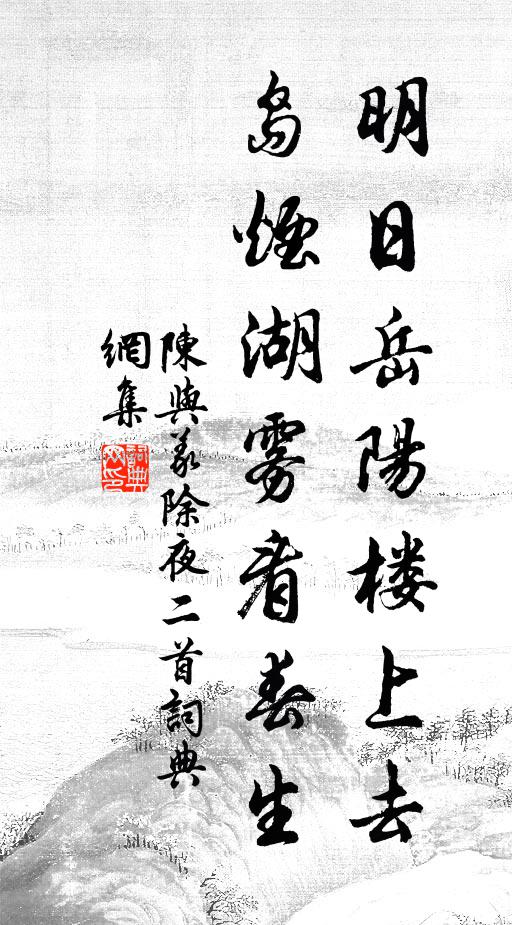 明日岳陽楼上去
島煙湖雾看春生
陳與义除夜二首詞典
網集
詞典網印